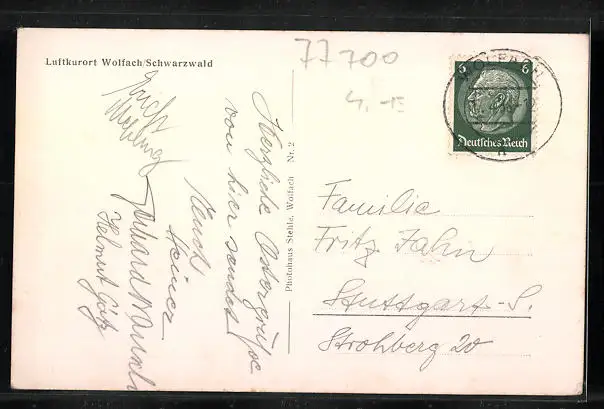 Luftkurort Wolfach/Schwarzwald
77700
4.-15
Herzliche Ostergrüße
von hier sendet
Euch
Heiner
Gerhard
Helmut Götz
Photohaus Stehle, Wolfach Nr. 2
WOLFACH
6 6
Deutsches Reich
Familie
Fritz Jahn
Stuttgart-S.
Strohberg 20